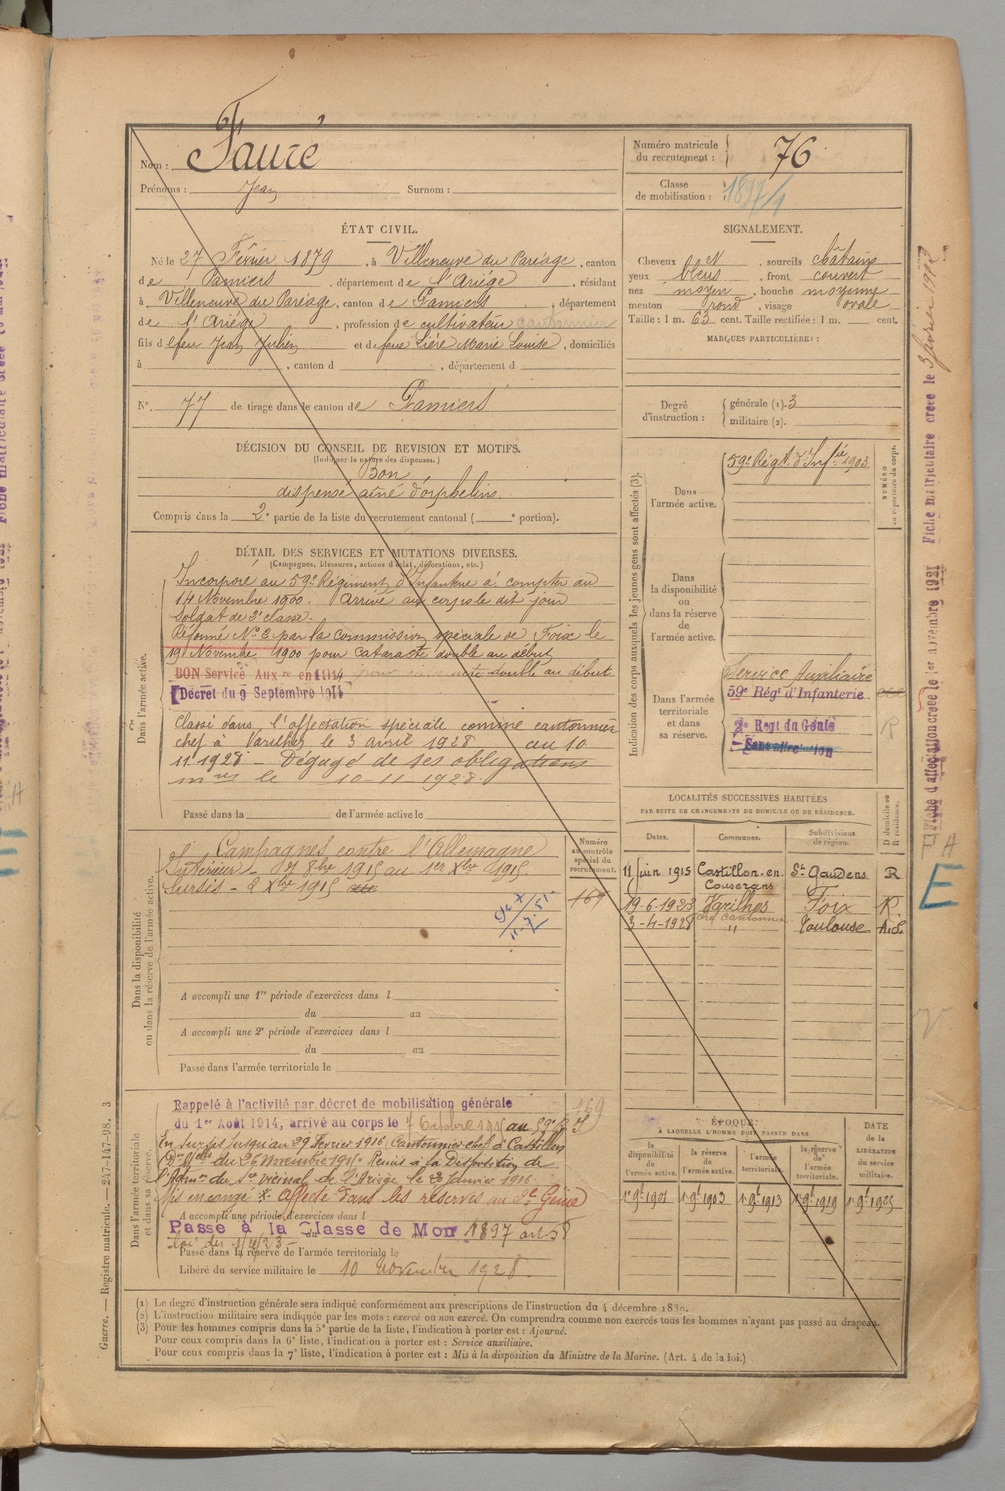 Nom : Faure
Prénoms : Jean Surnom :
Numéro matricule du recrutement : 76
Classe de mobilisation : 1897/4
ÉTAT CIVIL.
Né le 27 Février 1879, à Villeneuve du Paréage, canton
de Pamiers, département de l'Ariège, résidant
à Villeneuve du Paréage, canton de Pamiers, département
de l'Ariège, profession de cultivateur cantonnier
fils de feu Jean Julien et de feue Marie Louise, domiciliés
à , canton d , département d
N°. 77 de tirage dans le canton de Pamiers
SIGNALEMENT.
Cheveux N, sourcils châtains
yeux bleus, front couvert
nez moyen, bouche moyenne
menton rond, visage ovale
Taille : 1 m. 63 cent. Taille rectifiée : 1 m. cent.
MARQUES PARTICULIÈRES :
Degré d'instruction : générale (1). 3
militaire (2).
DÉCISION DU CONSEIL DE REVISION ET MOTIFS.
(Indiquer la nature des dispenses.)
Bon
dispensé aîné d'orphelins
Compris dans la 2e partie de la liste du recrutement cantonal ( e portion).
DÉTAIL DES SERVICES ET MUTATIONS DIVERSES.
(Campagnes, blessures, actions d'éclat, décorations, etc.)
Dans l'armée active.
Incorporé au 59e Régiment d'Infanterie à compter du
14 Novembre 1900. Arrivé au corps le dit jour
Soldat de 2e classe.
Réformé No 2 par la commission spéciale de Foix le
19 Novembre 1900 pour cataracte double au début
BON Service Aux re en 1914 double au début
Décret du 9 Septembre 1914
Classé dans l'affectation spéciale comme cantonnier
chef à Varilhes le 3 avril 1928 au 10
11 1928 - Dégagé de ses obligations
mres le 10-11-1928.
Passé dans la de l'armée active le
Indication des corps auxquels les jeunes gens sont affectés (3).
NUMÉRO au répertoire du corps.
Dans l'armée active.
59e Régt d'Inf rie 1903
Dans la disponibilité ou dans la réserve de l'armée active.
Dans l'armée territoriale et dans sa réserve.
Service Auxiliaire
59e Rég t d'Infanterie
2e Regt du Génie
Sans affectation
R
LOCALITÉS SUCCESSIVES HABITÉES
PAR SUITE DE CHANGEMENTS DE DOMICILE OU DE RÉSIDENCE.
Dates. Communes. Subdivisions de région. D domicile ou R résidence.
11 juin 1915 Castillon-en-Couserans St Gaudens R
19-6-1923 Varilhes Foix R.
3-4-1928 " Toulouse A.S.
Dans la disponibilité ou dans la réserve de l'armée active.
Numéro au contrôle spécial du recrutement.
169
Campagnes contre l'Allemagne
Intérieur - 8bre 1915 au 1er Xbre 1915.
Sursis - 2 Xbre 1915
A accompli une 1re période d'exercices dans l
du au
A accompli une 2e période d'exercices dans l
du au
Passé dans l'armée territoriale le
Dans l'armée territoriale et dans sa réserve.
Rappelé à l'activité par décret de mobilisation générale
du 1er Août 1914, arrivé au corps le 7 Octobre 1915 au 59e R I
En sursis jusqu'au 29 Février 1916 Cantonnier chef à Castillon
du 26 Novembre 1915 Remis à la Disposition de
l'Adm on du Sce vicinal de l'Ariège le 23 Janvier 1916.
Mis en congé affecté dans les réserves au 2e Génie
A accompli une période d'exercices dans l
Passé à la Classe de Mob 1897 art 58
loi du 1/4/23 -
Passé dans la réserve de l'armée territoriale le
Libéré du service militaire le 10 novembre 1928
169
ÉPOQUE
À LAQUELLE L'HOMME DOIT PASSER DANS
la disponibilité de l'armée active. la réserve de l'armée active. l'armée territoriale. la réserve de l'armée territoriale. DATE de la LIBÉRATION du service militaire.
1er 9bre 1901 1er 9bre 1903 1er 9bre 1913 1er 9bre 1919 1er 9bre 1925
(1) Le degré d'instruction générale sera indiqué conformément aux prescriptions de l'instruction du 4 décembre 1889.
(2) L'instruction militaire sera indiquée par les mots : exercé ou non exercé. On comprendra comme non exercés tous les hommes n'ayant pas passé au drapeau.
(3) Pour les hommes compris dans la 5e partie de la liste, l'indication à porter est : Ajourné.
Pour ceux compris dans la 6e liste, l'indication à porter est : Service auxiliaire.
Pour ceux compris dans la 7e liste, l'indication à porter est : Mis à la disposition du Ministre de la Marine. (Art. 4 de la loi.)
Guerre. — Registre matricule. — 247-147-98. 3
Fiche d'affectation créée le 1er novembre 1921 Fiche matriculaire créée le 3 février 1922
A
E